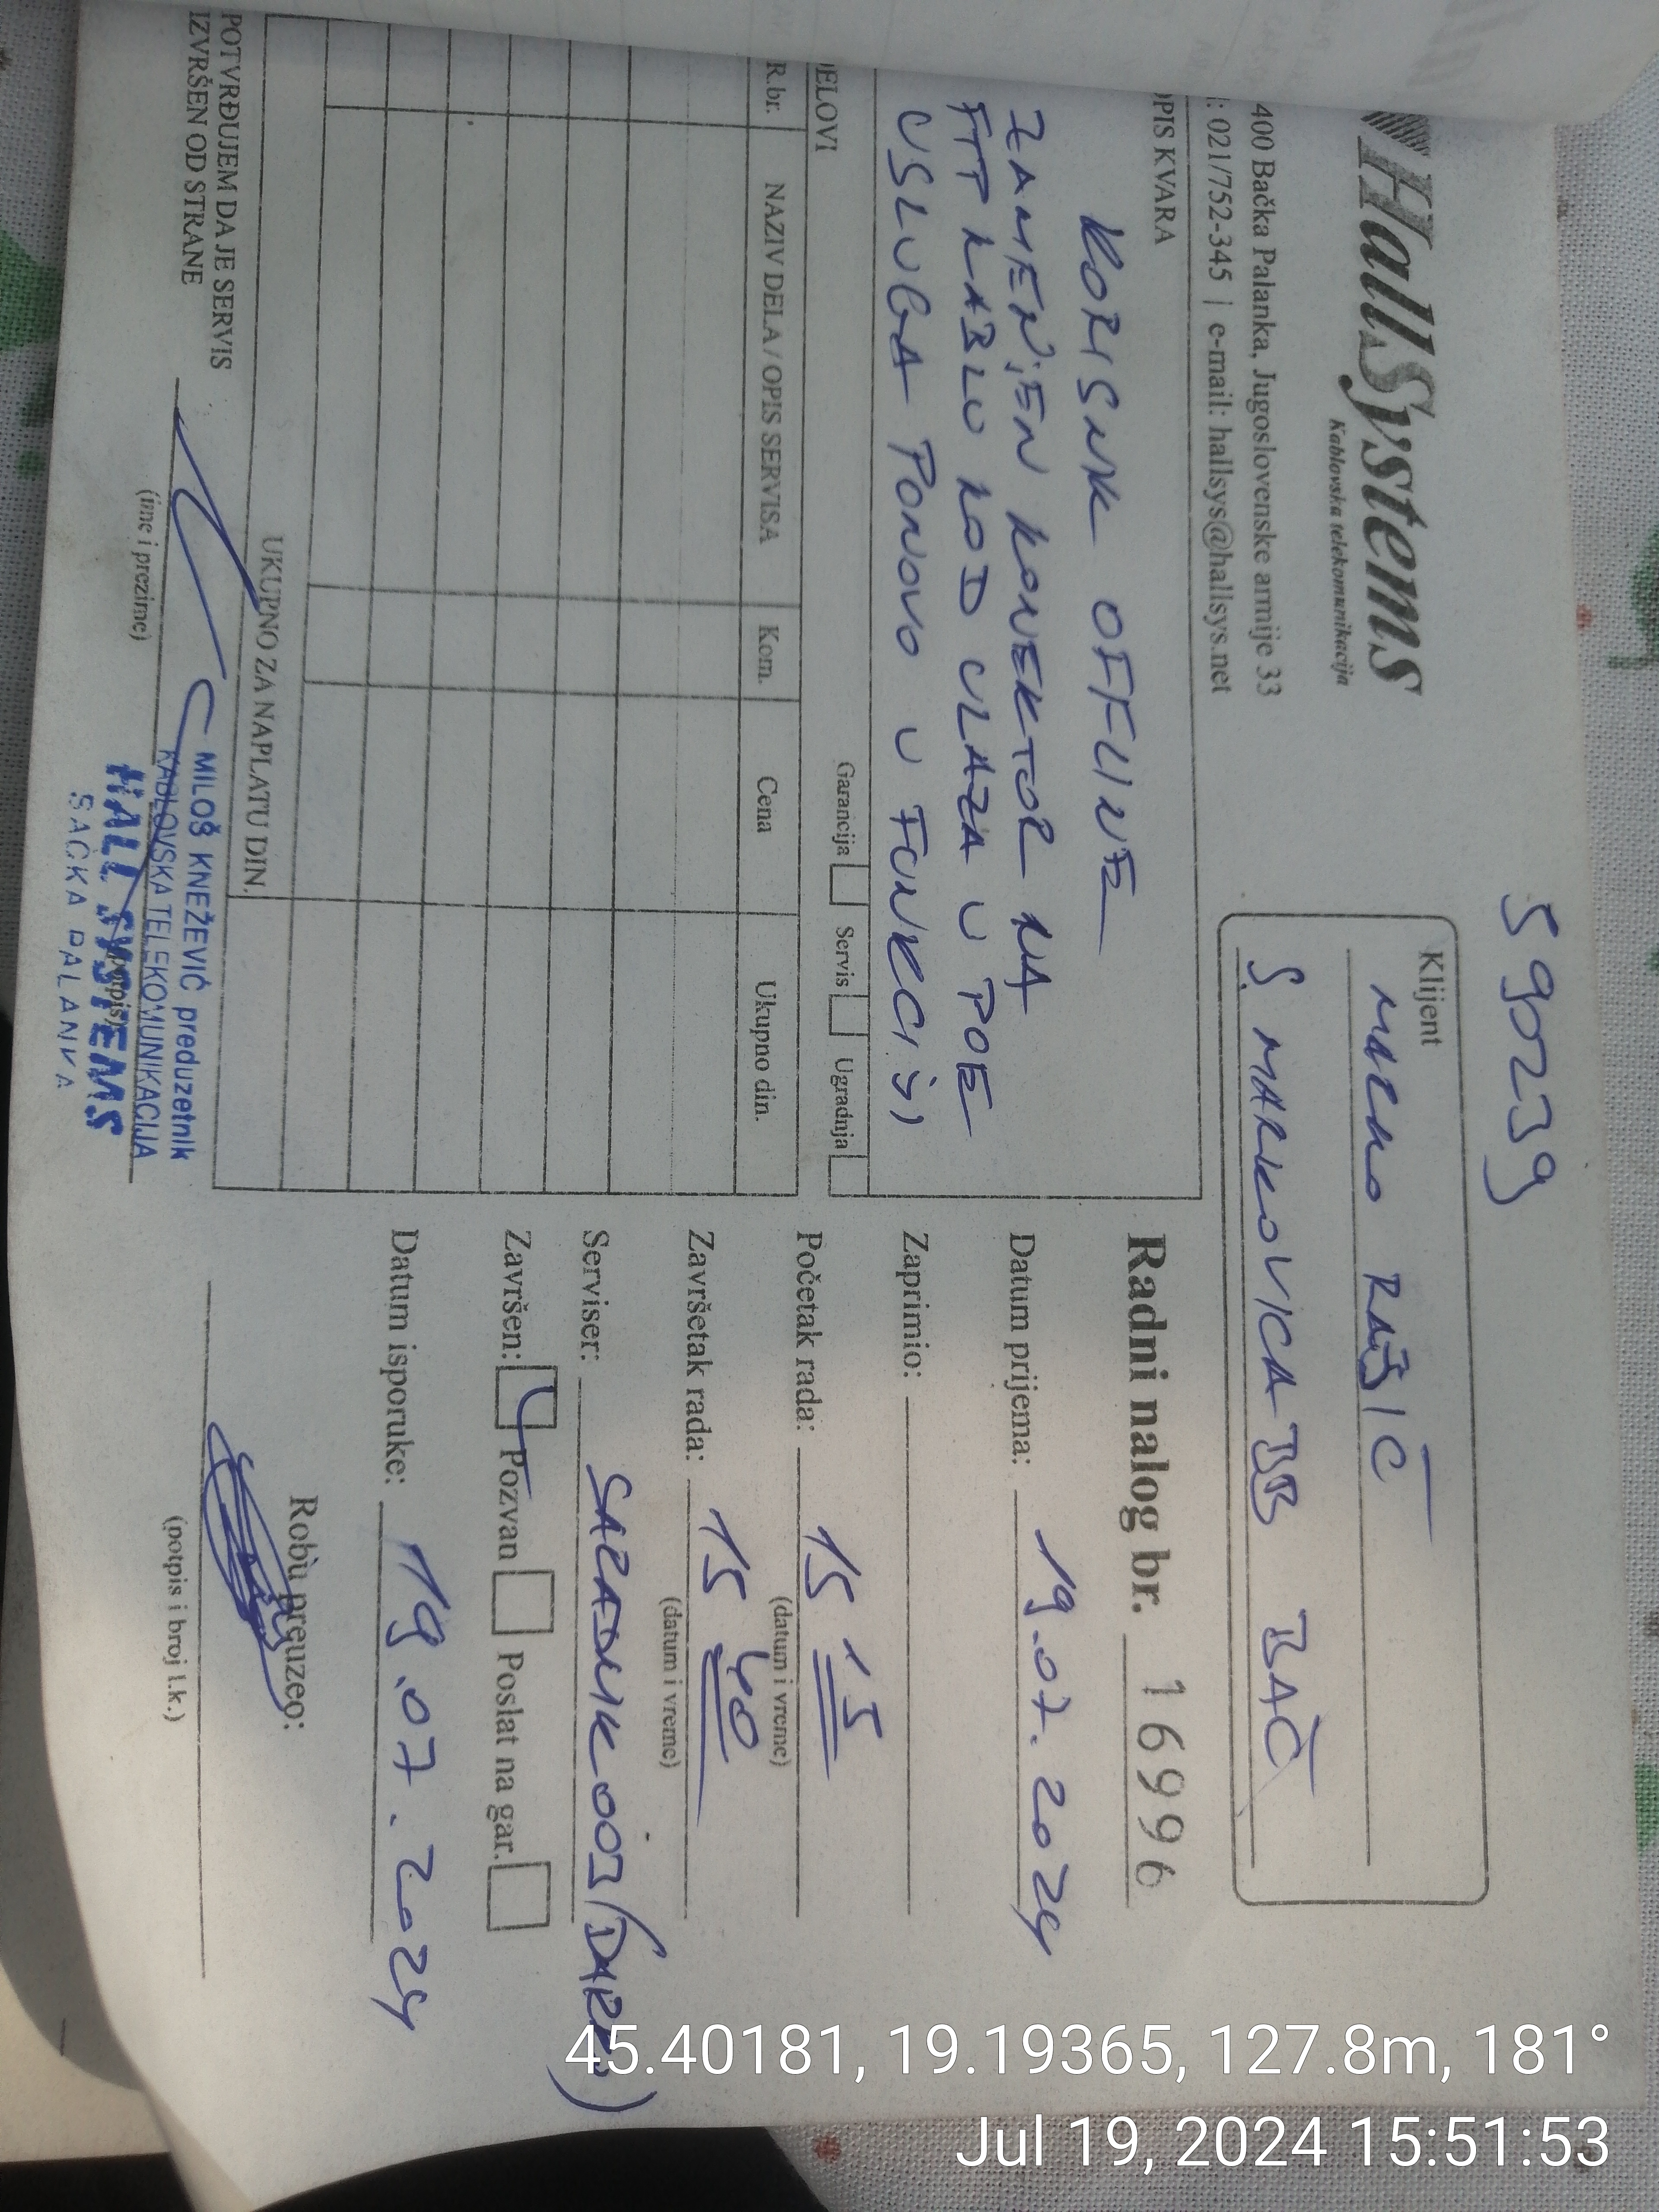 59029
HallSystems
Kablovska telekomunikacija
400 Bačka Palanka, Jugoslovenske armije 33
: 021/752-345 | e-mail: hallsys@hallsys.net
Klijent
RAŠIĆ
S. MARKOVICA BB BAČ
OPIS KVARA
KORISNIK OFFLINE
ZAMENJEN KONEKTOR NA
FTP KABLU KOD ULAZA U POE
USLUGA PONOVO U FUNKCIJI
Garancija Servis Ugradnja
DELOVI
R.br. NAZIV DELA / OPIS SERVISA Kom. Cena Ukupno din.
UKUPNO ZA NAPLATU DIN.
POTVRĐUJEM DA JE SERVIS
IZVRŠEN OD STRANE
(ime i prezime)
(potpis)
MILOŠ KNEŽEVIĆ preduzetnik
KABLOVSKA TELEKOMUNIKACIJA
HALL SYSTEMS
BAČKA PALANKA
Radni nalog br. 16996
Datum prijema: 19.07.2024
Zaprimio:
Početak rada: 15 15
(datum i vreme)
Završetak rada: 15 40
(datum i vreme)
Serviser:
Završen: Pozvan Poslat na gar.
Datum isporuke: 19.07.2024
Robu preuzeo:
(potpis i broj l.k.)
45.40181, 19.19365, 127.8m, 181°
Jul 19, 2024 15:51:53